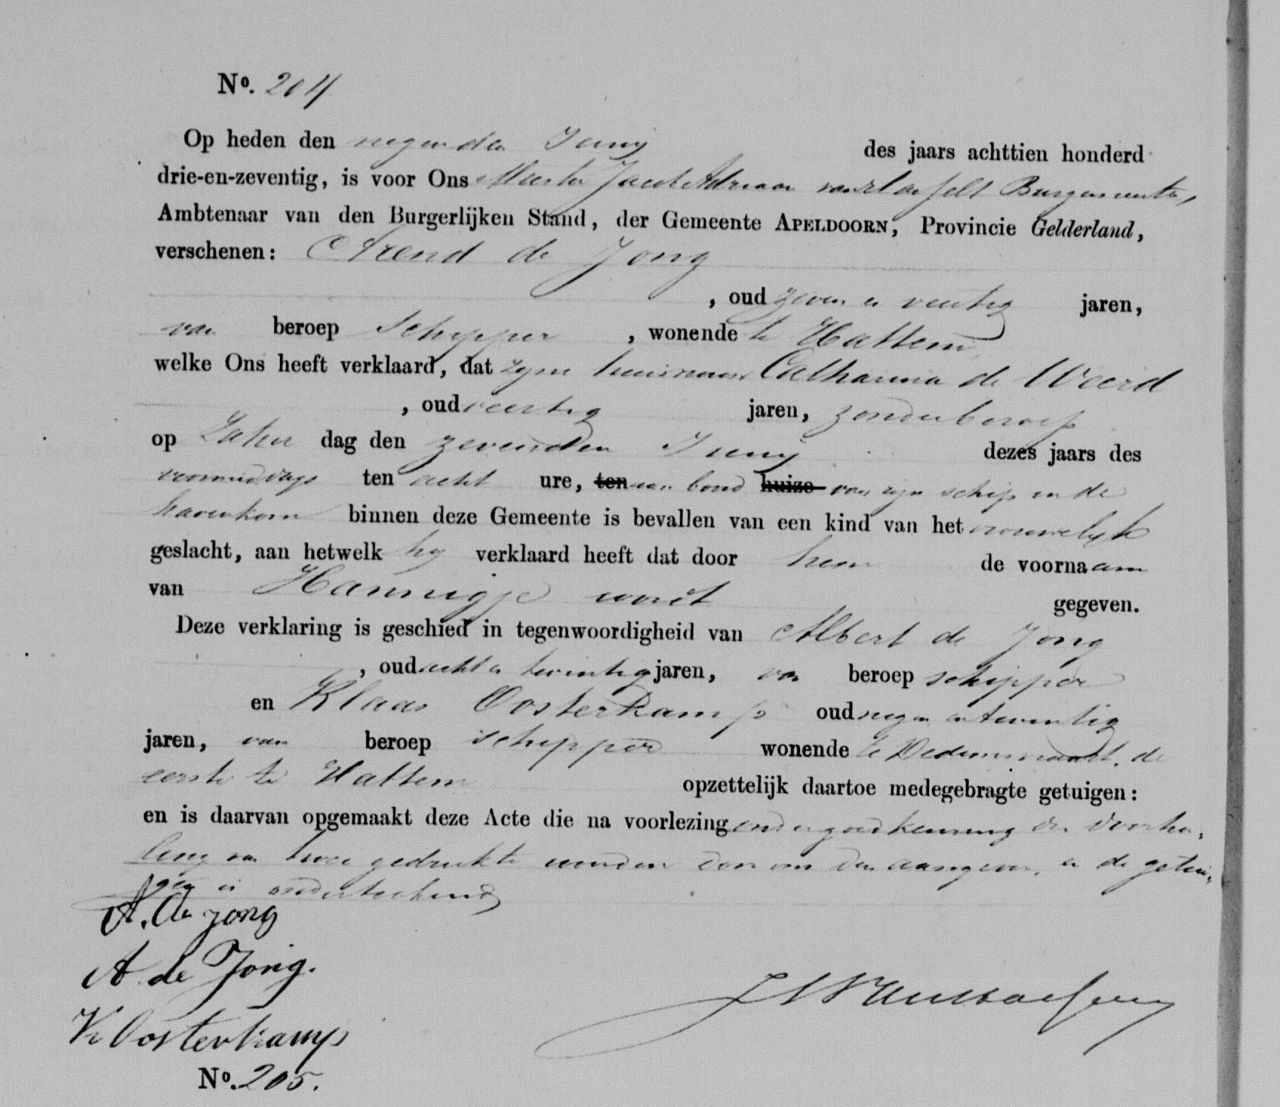 No. 204
Op heden den negenden Junij des jaars achttien honderd
drie-en-zeventig, is voor Ons Meester Jacob Adriaan van Burgemeester,
Ambtenaar van den Burgerlijken Stand, der Gemeente APELDOORN, Provincie Gelderland,
verschenen: Arend de Jong
, oud zeven en veertig jaren,
van beroep schipper, wonende te Hattem,
welke Ons heeft verklaard, dat zijne huisvrouw Catharina de Weerd
, oud veertig jaren, zonder beroep
op Zatur dag den zevenden Junij dezes jaars des
voormiddags ten acht ure, ten aan boord huize van zijn schip in de
havenkom binnen deze Gemeente is bevallen van een kind van het vrouwelijk
geslacht, aan hetwelk hij verklaard heeft dat door hem de voornaam
van Hannigje wordt gegeven.
Deze verklaring is geschied in tegenwoordigheid van Albert de Jong
, oud acht en twintig jaren, van beroep schipper
en Klaas Oosterkamp oud negen en twintig
jaren, van beroep schipper wonende te Dedemsvaart, de
eerste te Hattem opzettelijk daartoe medegebragte getuigen:
en is daarvan opgemaakt deze Acte die na voorlezing en goedkeuring der doorha,
ling van twee gedrukte woorden door ons den aangever en de getui,
gen is onderteekend
A. de jong
A de Jong.
K Oosterkamp
No. 205.